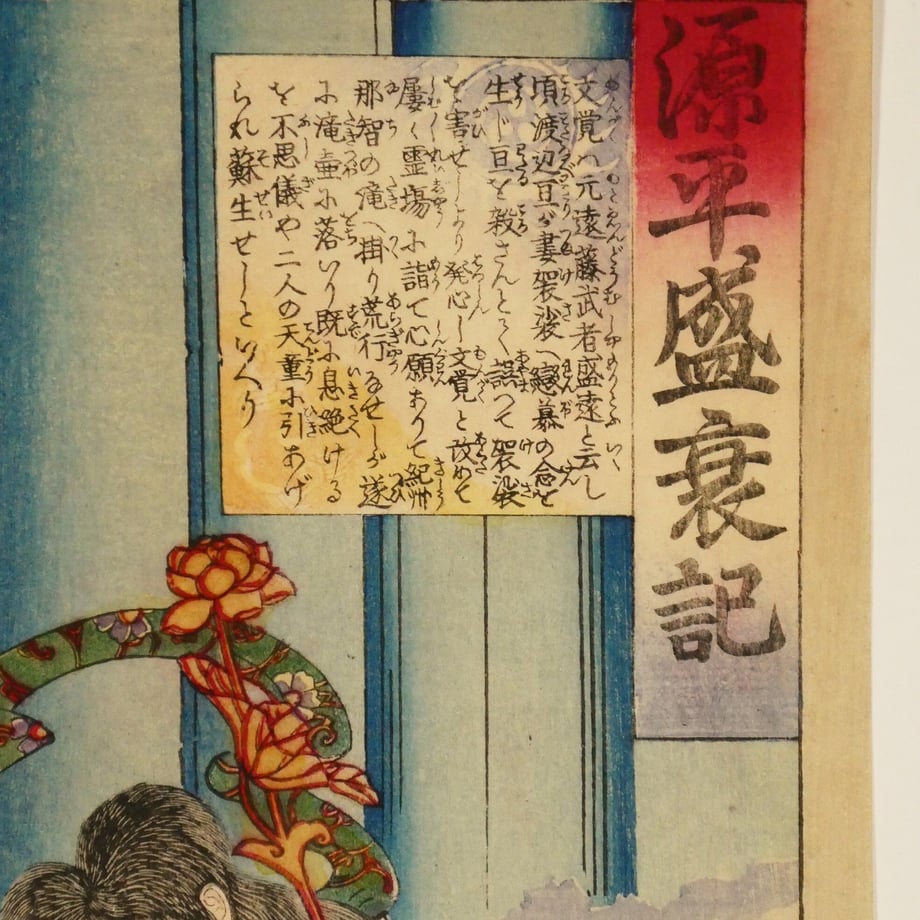 源平盛衰記
文覚ハ元遠藤武者盛遠と云し
頃渡辺亘が妻袈裟へ戀慕の念を
生じ亘を殺さんとて誤つて袈裟
を害せしより発心し文覚と改めて
屡く霊場に詣て心願ありて紀州
那智の滝へ掛り荒行なせしが遂
に滝壷に落いり既に息絶ける
を不思儀や二人の天童に引あげ
られ蘇生せしといへり